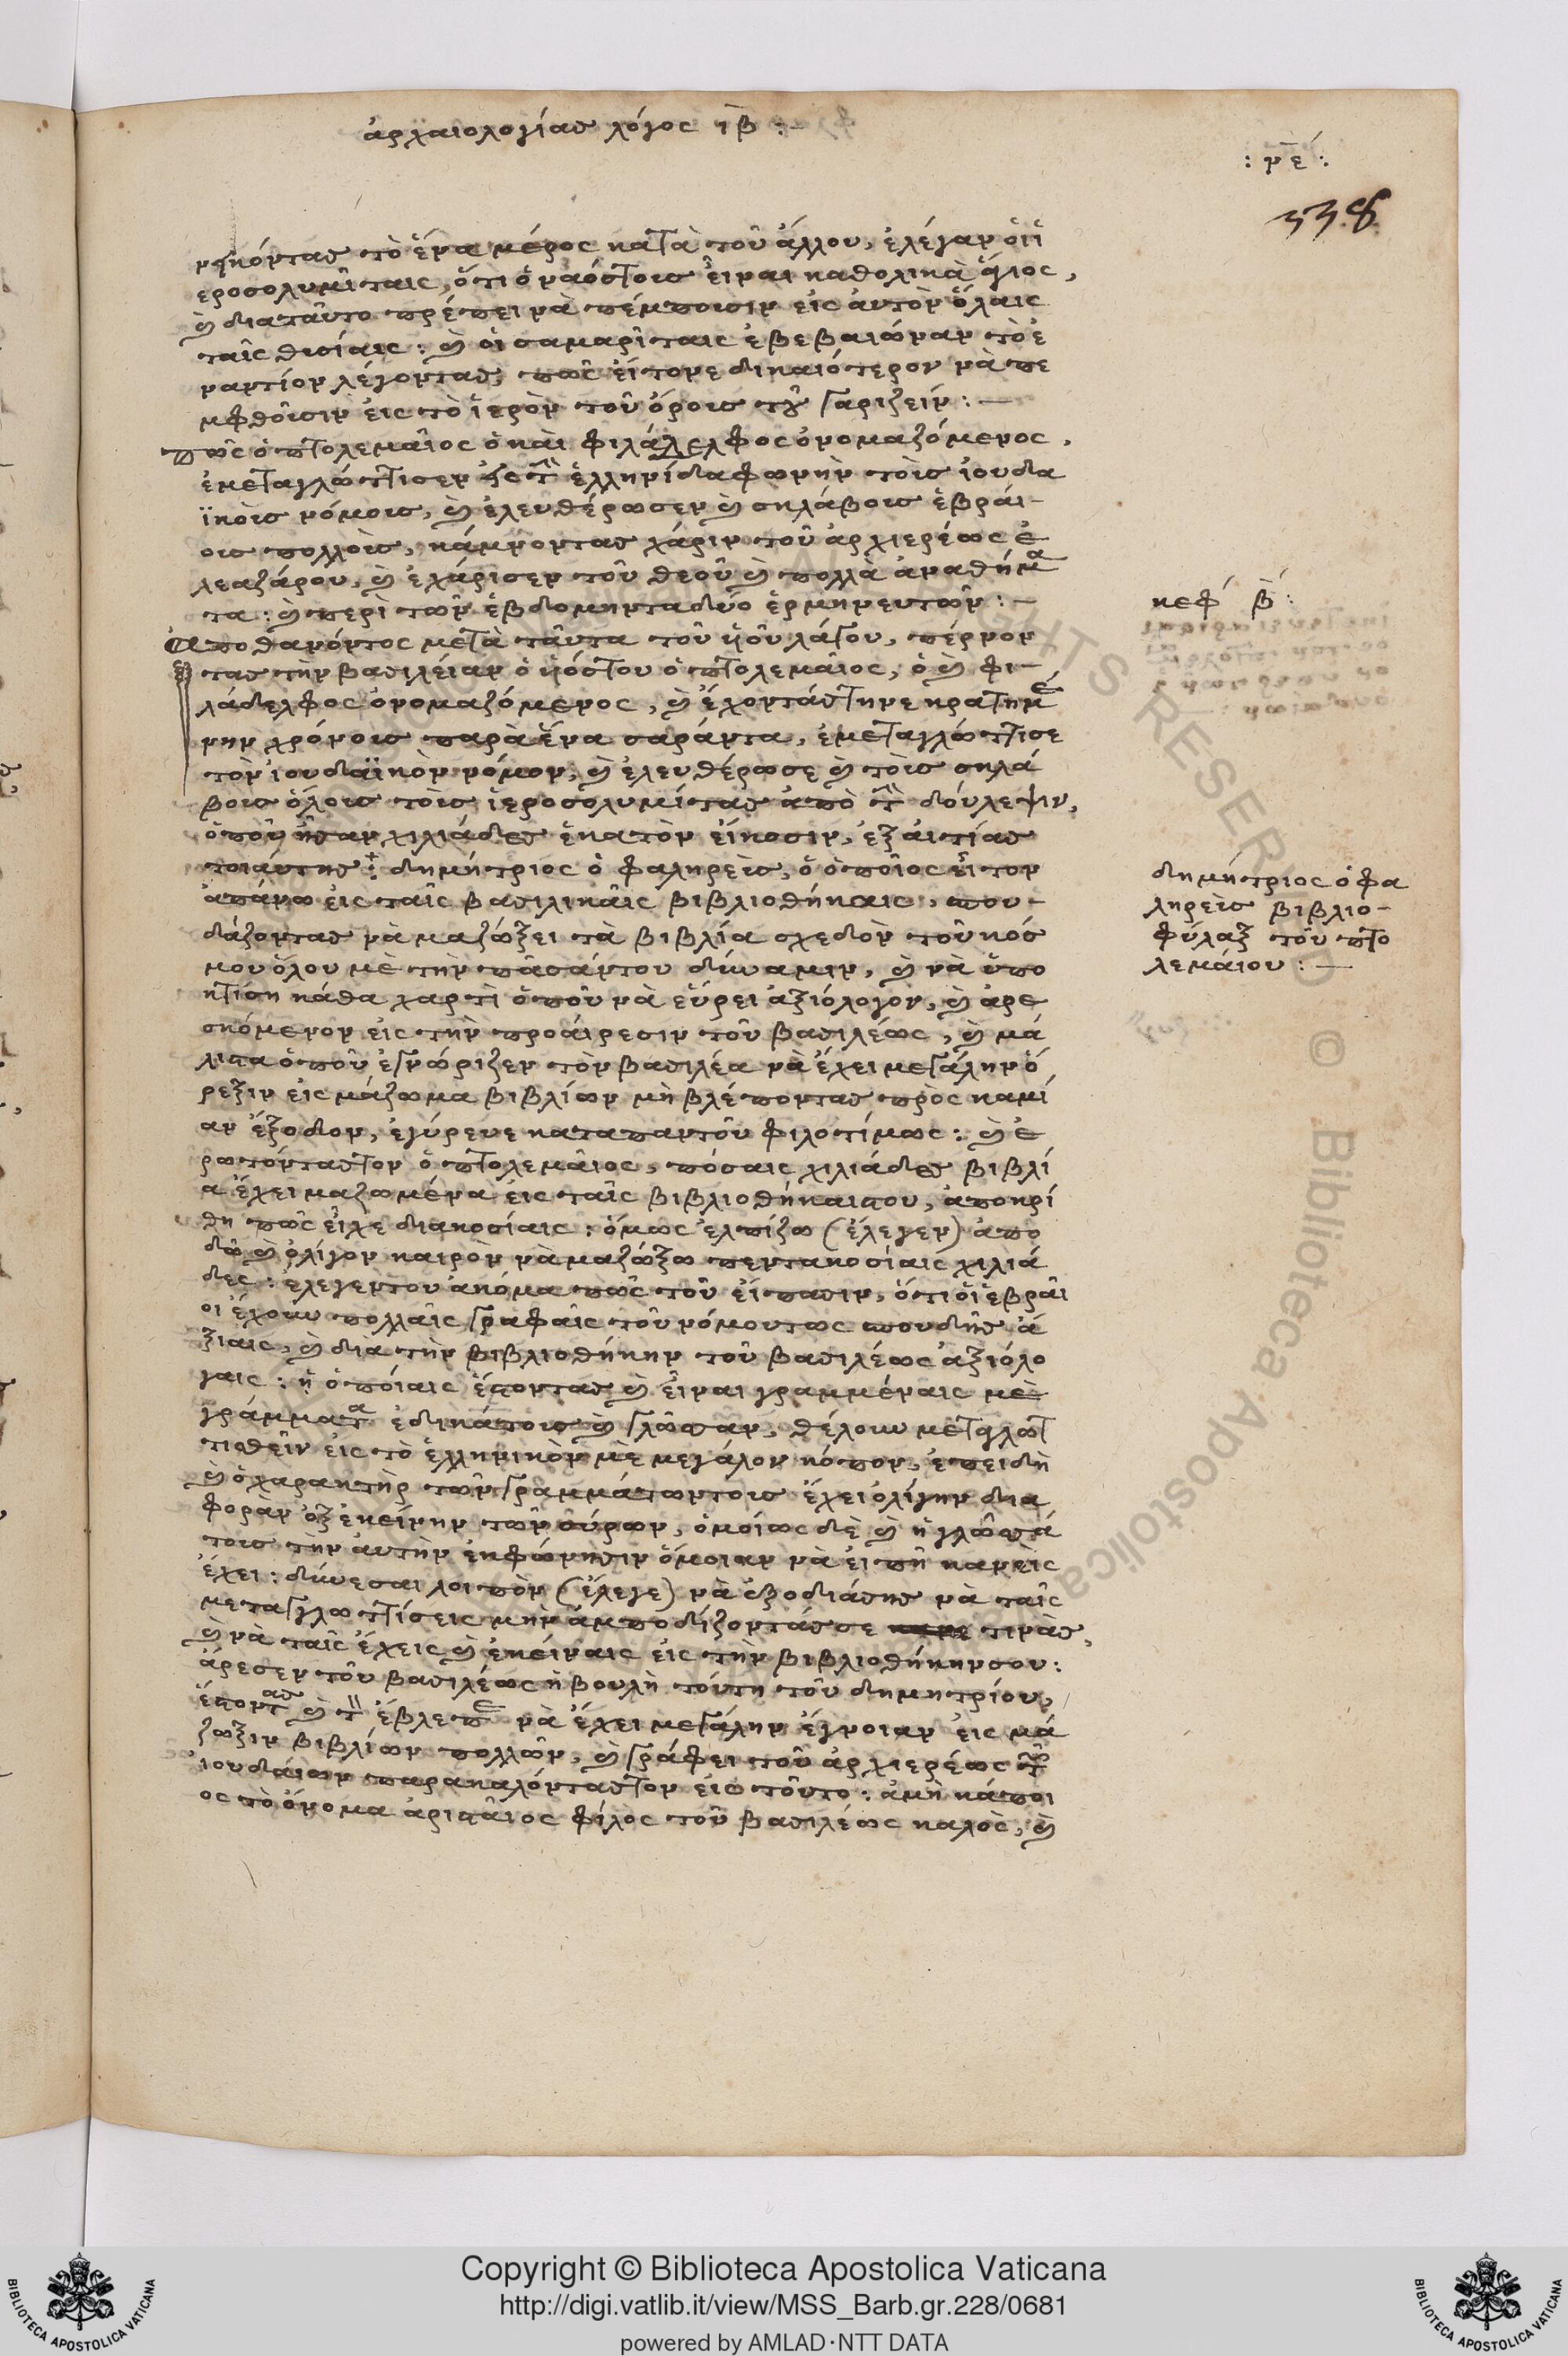 ἀρχαιολογίας λόγος ιβ :-
: νε :
338
νικόντας τὸ ἕνα μέρος κατὰ τοῦ ἄλλου, ἐλέγαν οἱ ἱ
εροσολυμῖταις, ὅτι ὁ ναόστους εἶναι καθολικὰ ἅγιος,
καὶ διαταῦτο πρέπει νὰ πέμπουσιν εἰς αὐτὸν ὅλαις
ταῖς θυσίαις : καὶ οἱ σαμαρῖταις ἐβεβαιώναν τὸ ἐ
ναντίον λέγοντας, πῶς εἴτονε δικαιότερον νὰ πε
μφθοῦσιν εἰς τὸ ἱερὸν τοῦ ὄρους τοῦ γαριζείν : —
πῶς ὁ πτολεμαῖος ὁ καὶ φιλάδελφος ὀνομαζόμενος,
ἐμεταγλώττισεν εἰς τὴν ἑλληνίδα φωνὴν τοὺς ἰουδα
ϊκοὺς νόμους, καὶ ἐλευθέρωσεν καὶ σκλάβους ἑβραί-
ους πολλοὺς, κάμνοντας χάριν τοῦ ἀρχιερέως ἐ
λεαζάρου, καὶ ἐχάρισεν τοῦ θεοῦ καὶ πολλὰ ἀναθήμα
τα : καὶ περὶ τῶν ἑβδομηνταδύο ἑρμηνευτῶν : —
κεφ β :
Ἀποθανόντος μετὰ ταῦτα τοῦ υἱοῦ λάγου, πέρνον
τας τὴν βασιλείαν ὁ υἱόστου ὁ πτολεμαῖος, ὁ καὶ φι-
λάδελφος ὀνομαζόμενος, καὶ ἔχοντάς τηνε κρατημέ
νην χρόνους παρὰ ἕνα σαράντα, ἐμεταγλώττισε
τὸν ἰουδαϊκὸν νόμον, καὶ ἐλευθέρωσε καὶ τοὺς σκλά
βους ὅλους τοὺς ἱεροσολυμίτας ἀπὸ τὴν δούλεψιν,
ὁποῦ ἦσαν χιλιάδες ἑκατὸν εἴκοσιν, ἐξ αἰτίας
τοιαύτης : δημήτριος ὁ φαληρεὺς, ὁ ὁποῖος εἶτον
ἀπάνω εἰς ταῖς βασιλικαῖς βιβλιοθήκαις, σπου-
δάζοντας νὰ μαζώξει τὰ βιβλία σχεδὸν τοῦ κόσ
μου ὅλου μὲ τὴν πᾶσάντου δύναμιν, καὶ νὰ ἀπο
κτίση κάθα χαρτὶ ὁποῦ νὰ εὕρει ἀξιόλογον, καὶ ἀρε
σκόμενον εἰς τὴν προαίρεσιν τοῦ βασιλέως, καὶ μά
λιστα ὁποῦ ἐγνώριζεν τὸν βασιλέα νὰ ἔχει μεγάλην ὄ
ρεξιν εἰς μάζωμα βιβλίων μὴ βλέποντας πρὸς καμί
αν ἔξοδον, ἐγύρευε καταπαντοῦ φιλοτίμως : καὶ ἐ
ρωτόνταστον ὁ πτολεμαῖος, πόσαις χιλιάδες βιβλί
α ἔχει μαζωμένα εἰς ταῖς βιβλιοθήκαιστου, ἀποκρί
θη πῶς εἶχε διακοσίαις : ὅμως ἐλπίζω (ἔλεγεν) ἀπο
δῶ καὶ ὀλίγον καιρὸν νὰ μαζώξω πεντακοσίαις χιλιά
δες : ἐλεγεντου ἀκόμα πῶς τοῦ εἴπασιν, ὅτι οἱ ἑβραῖ
οι ἔχουν πολλαῖς γραφαῖς τοῦ νόμουτως σπουδῆς ἀ
ξιαις, καὶ δια τὴν βιβλιοθήκην τοῦ βασιλέως ἀξιόλο
γαις : ἡ ὁποίαις ἔστοντας καὶ εἶναι γραμμέναις μὲ
γράμματα ἐδικάτους καὶ γλῶσσαν, θέλουν μεταγλωτ
τισθεῖν εἰς τὸ ἑλληνικὸν μὲ μεγάλον κόπον, ἐπειδὴ
καὶ ὁ χαρακτὴρ τῶν γραμμάτωντους ἔχει ὀλίγην δια
φορὰν ἀξ ἐκείνην τῶν σύρων, ὁμοίως δὲ καὶ ἡ γλῶσσά
τους τὴν αὐτὴν ἐκφώνησιν ὅμοιαν νὰ εἰπῆ κανεὶς
ἔχει : δύνεσαι λοιπὸν (ἔλεγε) νὰ ἐξοδιάσης νὰ ταῖς
μεταγλωττίσεις μὴν ἀμποδίζοντάς σε τινὰς,
καὶ νὰ ταῖς ἔχεις καὶ ἐκείναις εἰς τὴν βιβλιοθήκηνσου :
ἄρεσεν τοῦ βασιλέως ἡ βουλὴ τούτη τοῦ δημητρίου,
ἔστοντας καὶ τὸν ἔβλεπε νὰ ἔχει μεγάλην ἔγνοιαν εἰς μά
ζωξιν βιβλίων πολλῶν, καὶ γράφει τοῦ ἀρχιερέως τῶν
ἰουδαίων παρακαλόνταστον εἰς τοῦτο : ἀμὴ κάποι
ος τὸ ὄνομα ἀρισταῖος φίλος τοῦ βασιλέως καλὸς, καὶ
δημήτριος ὁ φα
ληρεὺς βιβλιο-
φύλαξ τοῦ πτο
λεμαίου : —
ALL RIGHTS RESERVED © Biblioteca Apostolica Vaticana
BIBLIOTECA APOSTOLICA VATICANA
Copyright © Biblioteca Apostolica Vaticana
http://digi.vatlib.it/view/MSS_Barb.gr.228/0681
powered by AMLAD·NTT DATA
BIBLIOTECA APOSTOLICA VATICANA